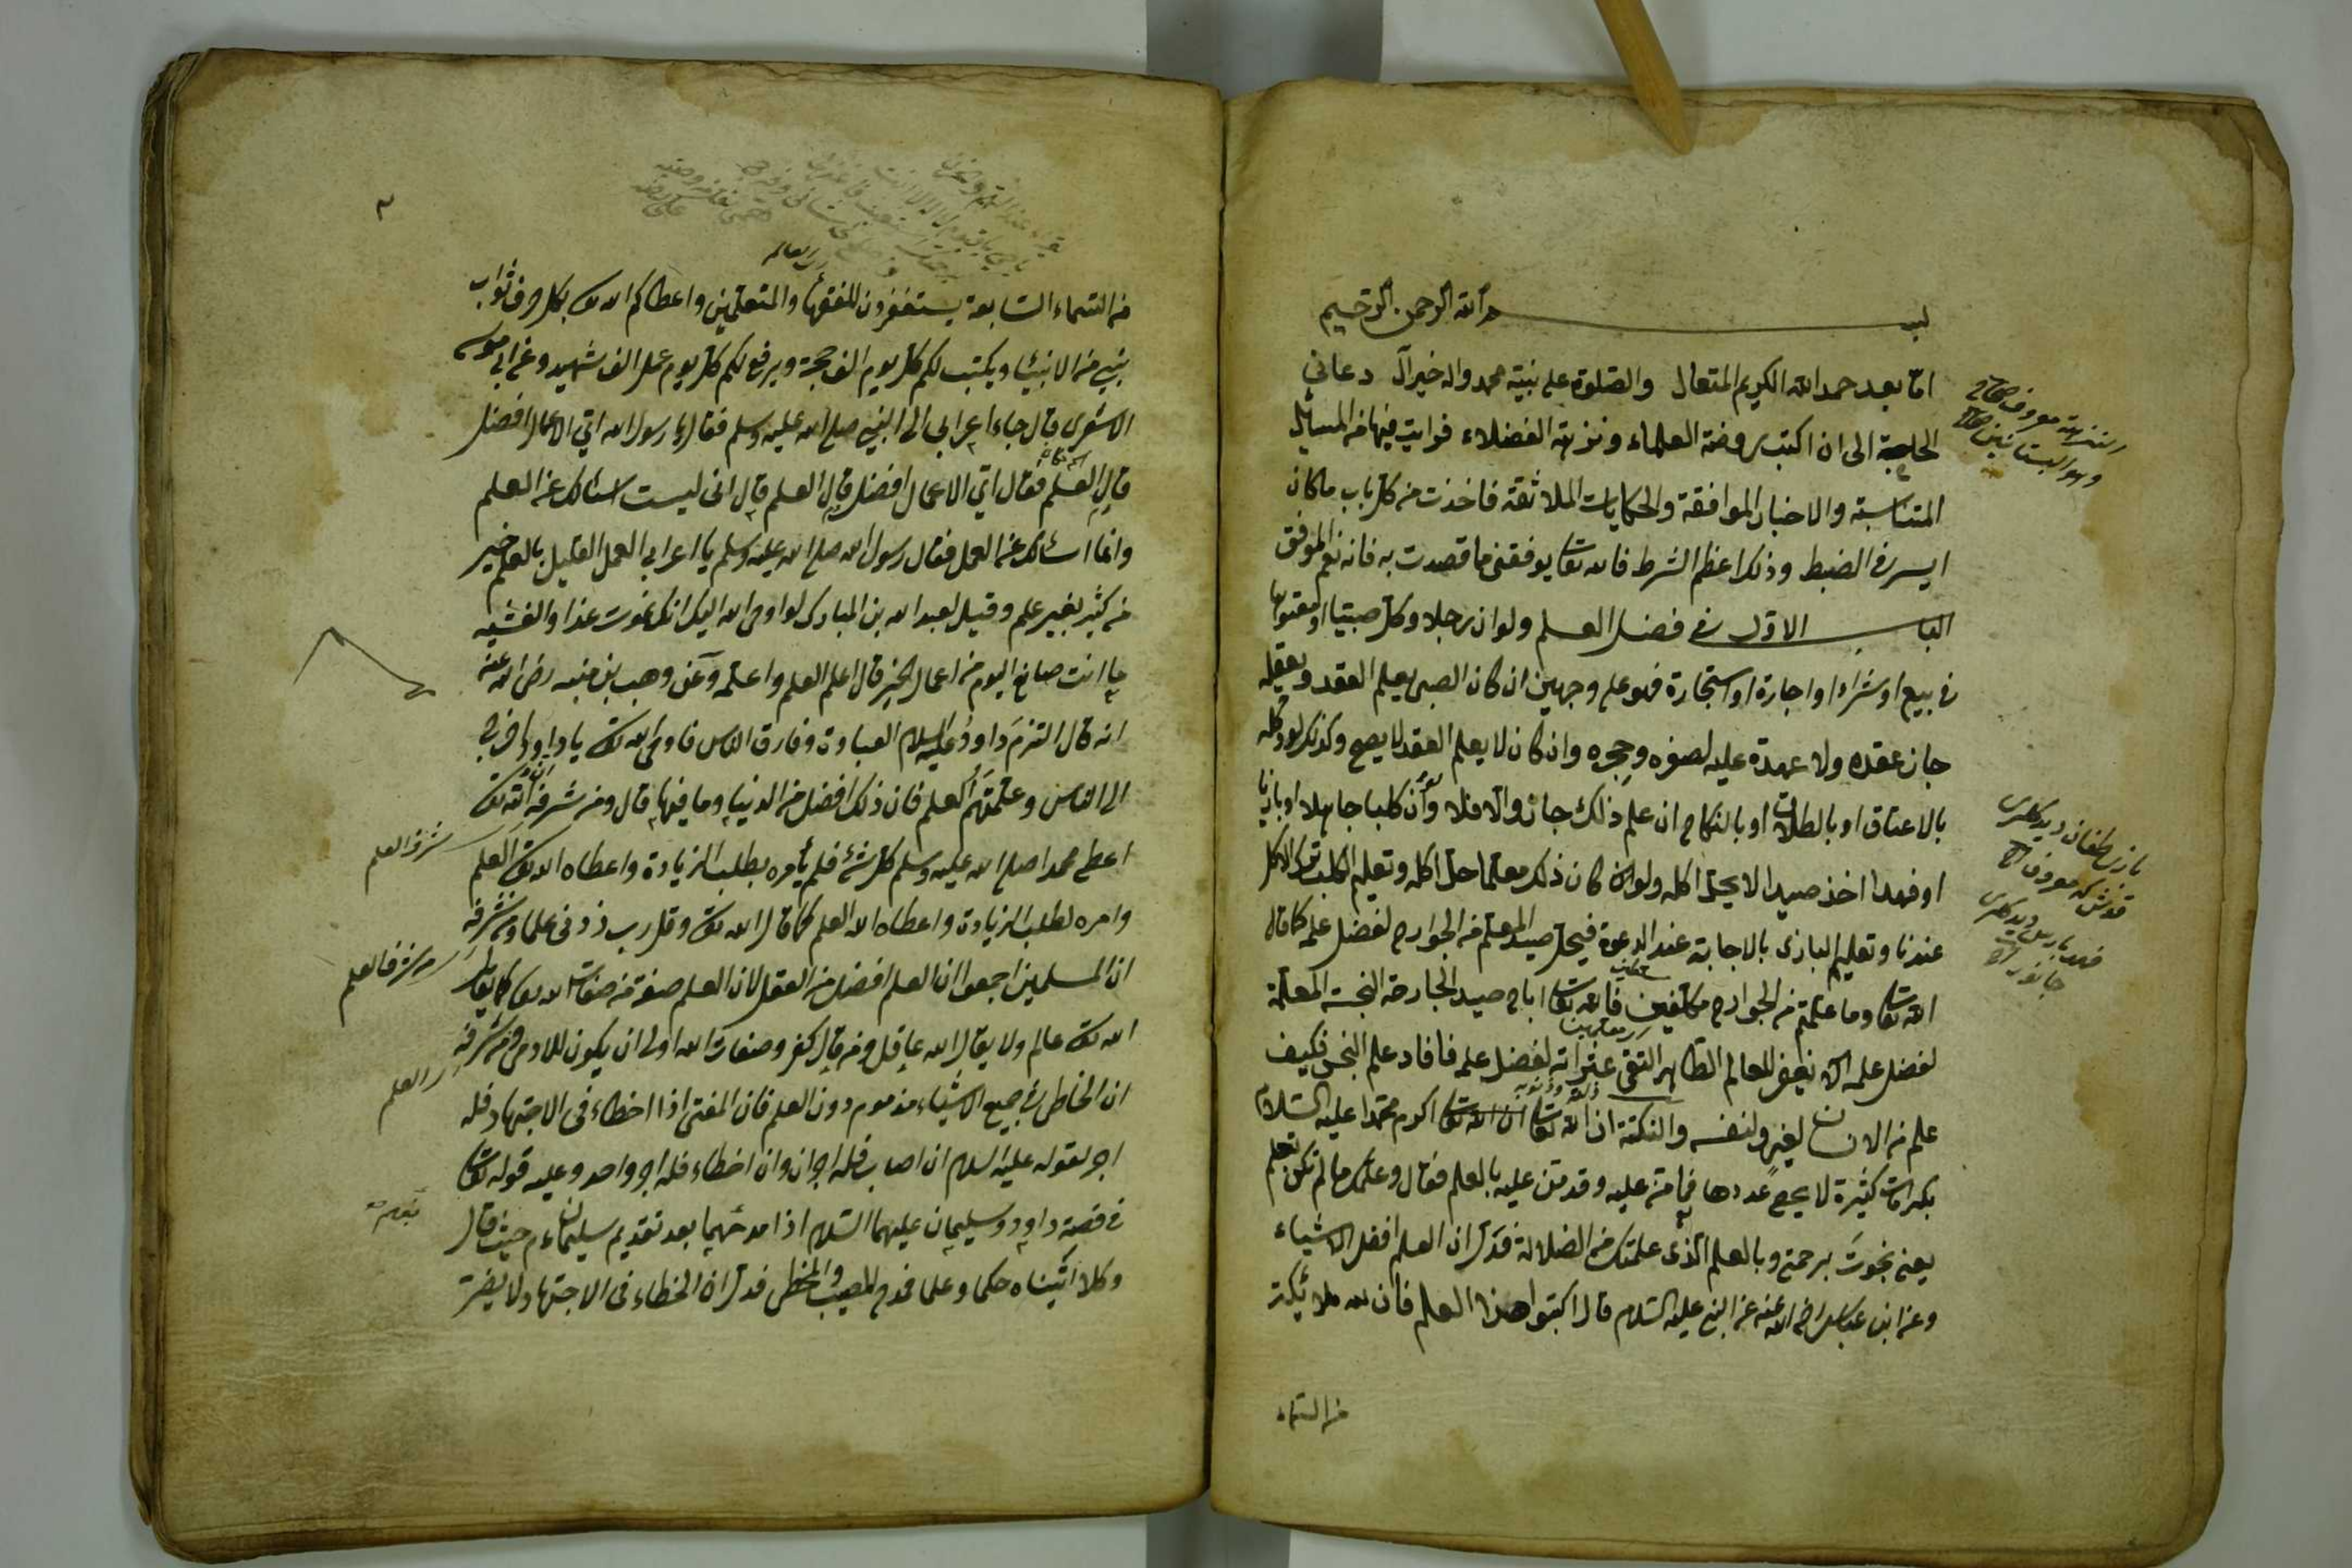 بسم الله الرحمن الرحيم
امّا بعد حمد الله الكريم المتعال والصّلوة على نبيّه محمد واله خير آل دعانى
الحاجة الى ان اكتب روضة العلماء ونزهة الفضلاء فرايت فيها من المسائل
المتناسبة والاخبار الموافقة والحكايات الملائقة فاخذت من كلّ باب ماكان
ايسر فى الضبط وذلك اعظم الشرط فالله تعا يوفقنى ما قصدت به فانه نعم الموفق
الباب الاوّل فى فضل العلم ولو ان رجلا وكّل صبيّا او معتوها
فى بيع او شراء او اجارة او استجارة فهو على وجهين ان كان الصبى يعلم العقد ويعقله
جاز عقده ولا عهدة عليه لصغره وحجره وان كان لا يعلم العقد لا يصح وكذلك لو وكله
بالاعتاق او بالطلاق او بالنكاح ان علم ذلك جاز والّا فلا ولو أن كلبا جاهلا او بازيا
او فهدا اخذ صيدا لا يحلّ اكله ولو كان ذلك معلّما حلّ اكله وتعليم الكلب ترك الاكل
عندنا وتعليم البازى بالاجابة عند الدعوة فيحلّ صيد المعلّم من الجوارح لفضل علمه كما قال
الله تعا وما علمتم من الجوارح مكلّبين فالله تعا اباح صيد الجارحة النجسة المعلّمة
لفضل علمه الا يغفر للعالم الطّاهر التقى عثراته لفضل علمه فافاد علم النجس فكيف
علم من الانسان لغيره ولنفسه والنكتة ان الله تعا اكرم محمّدا عليه السّلام
بكرامات كثيرة لا يحصى عددها فما منّ عليه وقد منّ عليه بالعلم فقال وعلّمك ما لم تكن تعلم
يعنى نجوتَ برحمتى وبالعلم الّذى علمتك من الضلالة فدلّ ان العلم افضل الاشياء
وعن ابن عباس رضى الله عنه عن النبى عليه السّلام قال اكتبوا هذا العلم فان لله ملائكة
من السّماء
من السّماء السّابعة يستغفرون للفقهاء والمتعلّمين واعطاكم الله تعا بكل حرف ثواب
نبىّ من الانبيا ويكتب لكم كلّ يوم الف حجة ويرفع لكم كلّ يوم عمل الف شهيد وعن ابى موسى
الاشعرى قال جاء اعرابى الى النبى صلى الله عليه وسلم فقال يا رسول الله اىّ الاعمال افضل
قال العلم فقال اىّ الاعمال افضل قال العلم قال انى ليست اسئالك عن العلم
وانما اسئالك عن العمل فقال رسول الله صلى الله عليه وسلم يا اعرابى العمل القليل بالعلم خير
من كثير بغير علم وقيل لعبد الله بن المبارك لو اوحى الله اليك انك تموت غذا والعشيه
ما انت صانع اليوم من اعمال الخير قال اعلم العلم واعلّمه وعن وهب بن منبه رضى الله عنه
انه قال التزمَ داودُ عليه السلام العبادة وفارق الناس فاوحى الله تعا يا داود اخرج
الى الناس وعلّمهُم العلم فان ذلك افضل من الدنيا وما فيها قال ومن شرفه ان الله تعا
اعطى محمدا صلى الله عليه وسلم كلّ شئ فلم يأمره بطلب الزيادة واعطاه الله تعا العلم
وامره لطلب الزيادة واعطاه الله العلم كما قال الله تعا وقل رب زدنى علما ومن شرفه
ان المسلمين اجمعوا ان العلم افضل من العقل لان العلم صفة من صفات الله تعا كما يقال
الله تعا عالم ولا يقال الله عاقل ومن قال كفر وصفات الله اولى ان يكون للادمى ومن شرفه
ان الخاطى فى جميع الاشياء مذموم دون العلم فان المفتى اذا اخطاء فى الاجتهاد فله
اجر لقوله عليه السلام ان اصاب فله اجران وان اخطاء فله اجر واحد وعليه قوله تعا
فى قصة داود وسليمان عليهما السّلام اذا مدحهما بعد تقديم سليمان م حيث قال
وكلا اتيناه حكما وعلما فمدح المصيب والمخطى فدلّ ان الخطاء فى الاجتهاد لا يضرّ
شرف العلم
شرف العلم
العلم